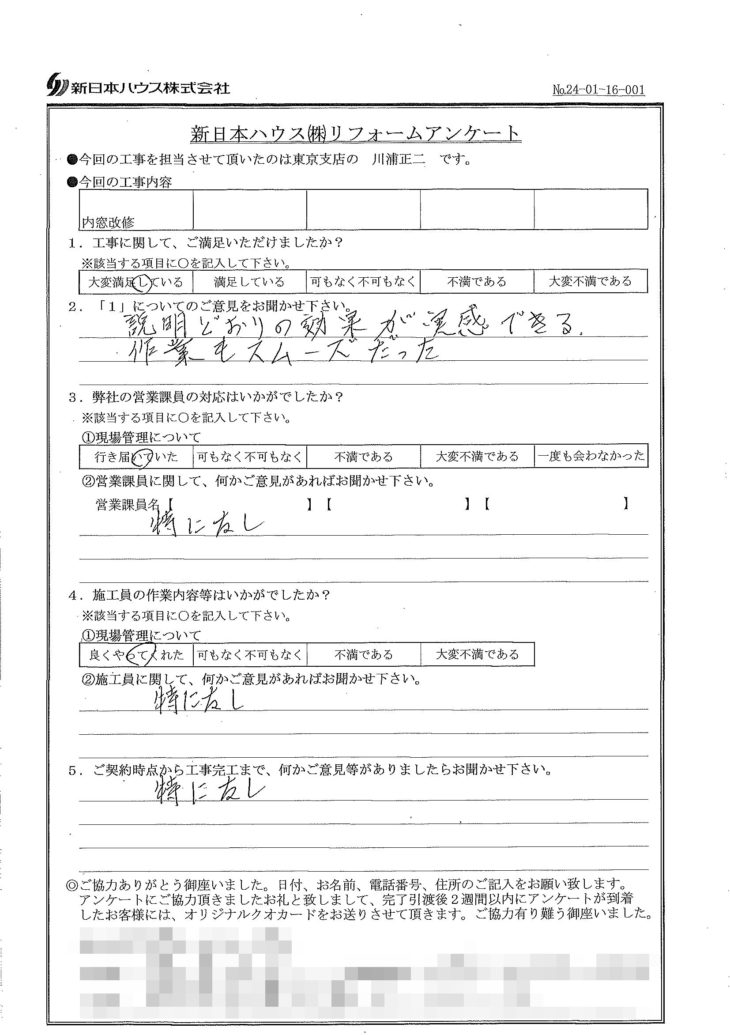 新日本ハウス株式会社
No.24-01-16-001
新日本ハウス㈱リフォームアンケート
●今回の工事を担当させて頂いたのは東京支店の 川浦正二 です。
●今回の工事内容
内窓改修
1．工事に関して、ご満足いただけましたか？
※該当する項目に○を記入して下さい。
大変満足している 満足している 可もなく不可もなく 不満である 大変不満である
2．「1」についてのご意見をお聞かせ下さい。
説明どおりの効果が実感できる.
作業もスムーズだった
3．弊社の営業課員の対応はいかがでしたか？
※該当する項目に○を記入して下さい。
①現場管理について
行き届いていた 可もなく不可もなく 不満である 大変不満である 一度も会わなかった
②営業課員に関して、何かご意見があればお聞かせ下さい。
営業課員名【 】【 】【 】
特になし
4．施工員の作業内容等はいかがでしたか？
※該当する項目に○を記入して下さい。
①現場管理について
良くやってくれた 可もなく不可もなく 不満である 大変不満である
②施工員に関して、何かご意見があればお聞かせ下さい。
特になし
5．ご契約時点から工事完工まで、何かご意見等がありましたらお聞かせ下さい。
特になし
◎ご協力ありがとう御座いました。日付、お名前、電話番号、住所のご記入をお願い致します。
アンケートにご協力頂きましたお礼と致しまして、完了引渡後２週間以内にアンケートが到着
したお客様には、オリジナルクオカードをお送りさせて頂きます。ご協力有り難う御座いました。